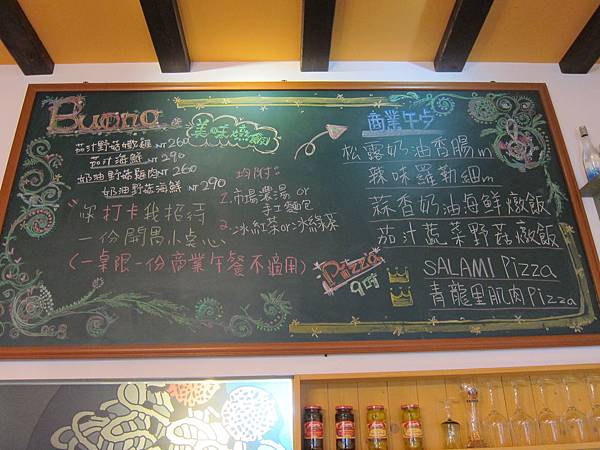 Buono
美味燉飯
茄汁野菇嫩雞 NT 260
茄汁海鮮 NT 290
奶油野菇雞肉 NT 260
奶油野菇海鮮 NT 290
均附:
1.市場濃湯 or
手工麵包
2.冰紅茶or冰綠茶
"你打卡我招待
一份開胃小點心
(一桌限一份商業午餐不適用)
商業午
松露奶油香腸
辣味羅勒細
蒜香奶油海鮮燉飯
茄汁蔬菜野菇燉飯
Pizza
9吋
SALAMI Pizza
青龍里肌肉Pizza